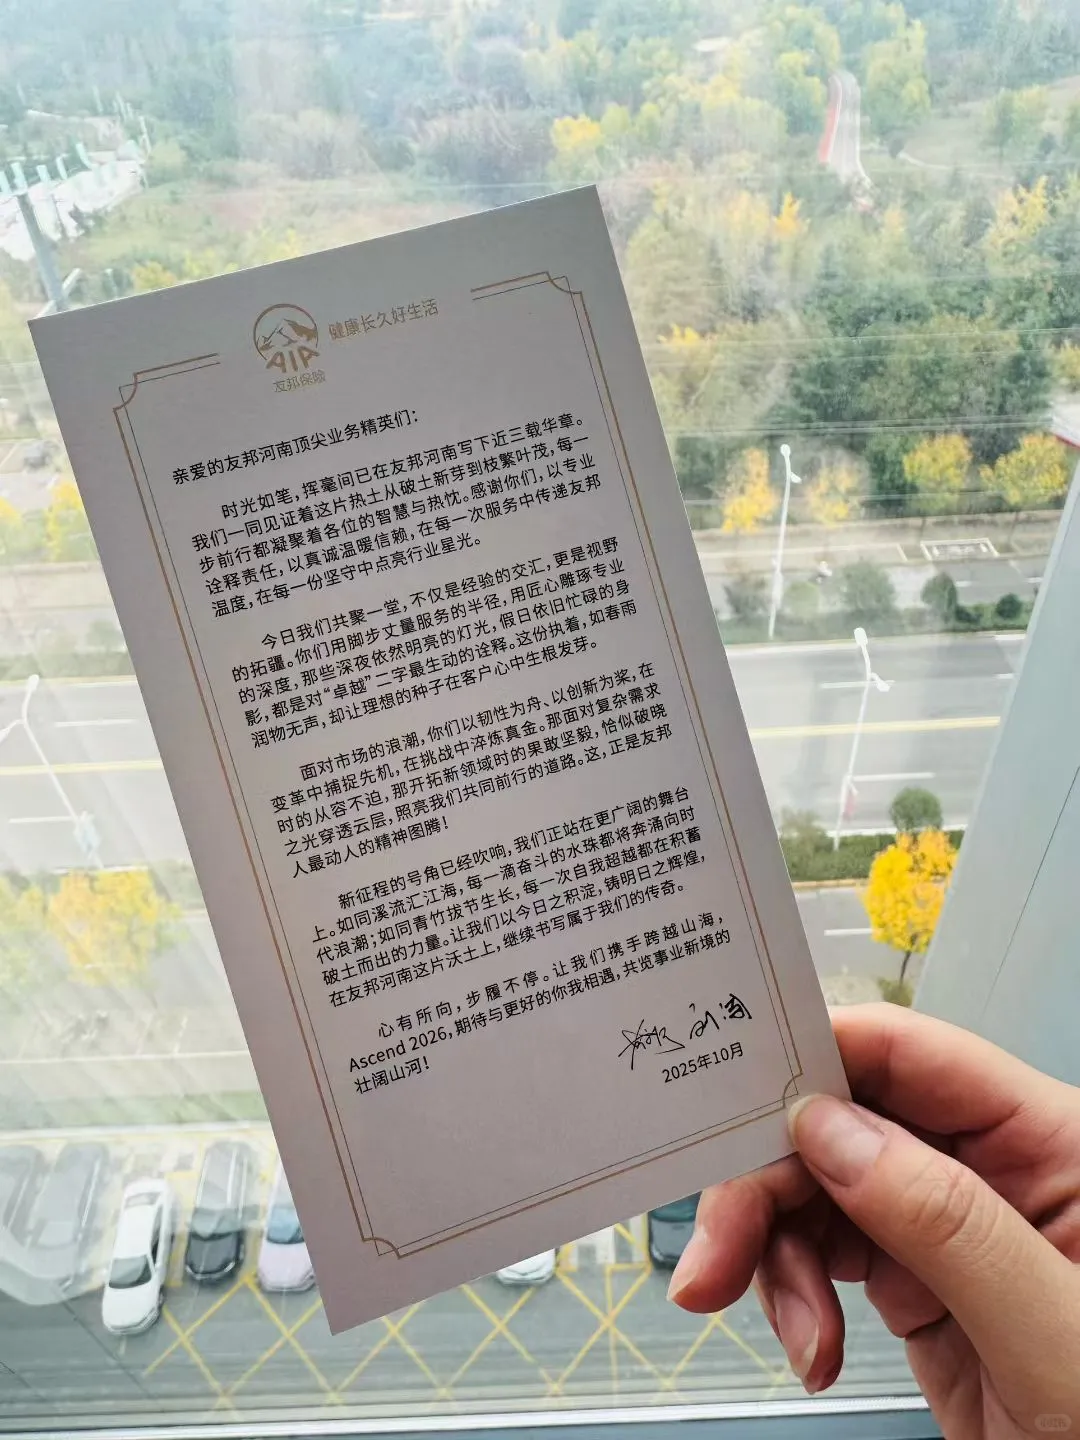 健康长久好生活
AIA
友邦保险
亲爱的友邦河南顶尖业务精英们：
时光如笔，挥毫间已在友邦河南写下近三载华章。
我们一同见证着这片热土从破土新芽到枝繁叶茂，每一
步前行都凝聚着各位的智慧与热忱。感谢你们，以专业
诠释责任，以真诚温暖信赖，在每一次服务中传递友邦
温度，在每一份坚守中点亮行业星光。
今日我们共聚一堂，不仅是经验的交汇，更是视野
的拓疆。你们用脚步丈量服务的半径，用匠心雕琢专业
的深度，那些深夜依然明亮的灯光，假日依旧忙碌的身
影，都是对“卓越”二字最生动的诠释。这份执着，如春雨
润物无声，却让理想的种子在客户心中生根发芽。
面对市场的浪潮，你们以韧性为舟、以创新为桨，在
变革中捕捉先机，在挑战中淬炼真金。那面对复杂需求
时的从容不迫，那开拓新领域时的果敢坚毅，恰似破晓
之光穿透云层，照亮我们共同前行的道路。这，正是友邦
人最动人的精神图腾！
新征程的号角已经吹响，我们正站在更广阔的舞台
上。如同溪流汇江海，每一滴奋斗的水珠都将奔涌向时
代浪潮；如同青竹拔节生长，每一次自我超越都在积蓄
破土而出的力量。让我们以今日之积淀，铸明日之辉煌，
在友邦河南这片沃土上，继续书写属于我们的传奇。
心有所向，步履不停。让我们携手跨越山海，
Ascend 2026，期待与更好的你我相遇，共览事业新境的
壮阔山河！
2025年10月